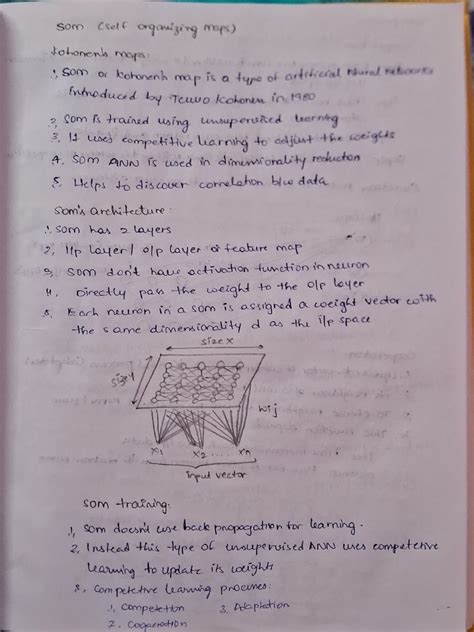 SOM (self organizing maps)
Kohonen's maps:
1, SOM or kohonen's map is a type of artificial Neural Networks
Introduced by Teuvo Kohonen in 1980
2, SOM is trained using unsupervised learning
3. It uses competitive learning to adjust the weights
4. SOM ANN is used in dimensionality reduction
5. Helps to discover correlation b/w data
SOM's architecture:
1. SOM has 2 layers
2, I/p layer / o/p layer or feature map
3, SOM don't have activation function in neuron
4, Directly pass the weight to the o/p layer
5, Each neuron in a SOM is assigned a weight vector with
the same dimensionality d as the i/p space
size x
size y
wij
x1 x2 .... xn
input vector
SOM training:
1, SOM doesn't use back propagation for learning.
2, Instead this type of unsupervised ANN uses competetive
learning to update its weights
3, Competetive learning processes:
1, Competetion 3. Adaptation
2, Cooperation